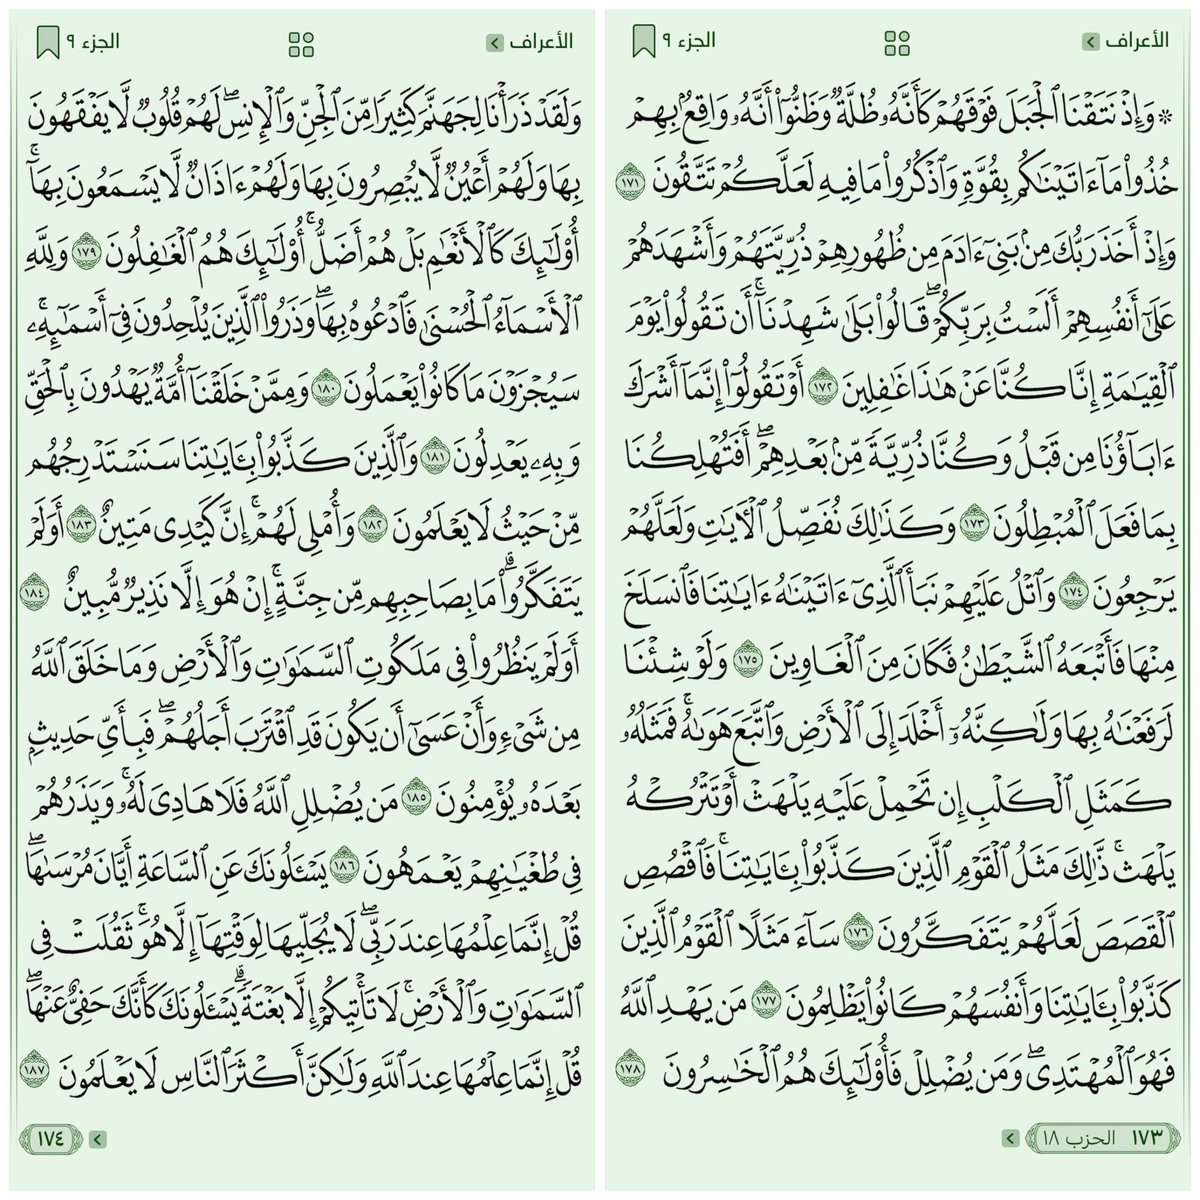 الأعراف
الجزء ٩
۞ وَإِذۡ نَتَقۡنَا ٱلۡجَبَلَ فَوۡقَهُمۡ كَأَنَّهُۥ ظُلَّةٞ وَظَنُّوٓاْ أَنَّهُۥ وَاقِعُۢ بِهِمۡ
خُذُواْ مَآ ءَاتَيۡنَٰكُم بِقُوَّةٖ وَٱذۡكُرُواْ مَا فِيهِ لَعَلَّكُمۡ تَتَّقُونَ ١٧١
وَإِذۡ أَخَذَ رَبُّكَ مِنۢ بَنِيٓ ءَادَمَ مِن ظُهُورِهِمۡ ذُرِّيَّتَهُمۡ وَأَشۡهَدَهُمۡ
عَلَىٰٓ أَنفُسِهِمۡ أَلَسۡتُ بِرَبِّكُمۡۖ قَالُواْ بَلَىٰ شَهِدۡنَآۚ أَن تَقُولُواْ يَوۡمَ
ٱلۡقِيَٰمَةِ إِنَّا كُنَّا عَنۡ هَٰذَا غَٰفِلِينَ ١٧٢ أَوۡ تَقُولُوٓاْ إِنَّمَآ أَشۡرَكَ
ءَابَآؤُنَا مِن قَبۡلُ وَكُنَّا ذُرِّيَّةٗ مِّنۢ بَعۡدِهِمۡۖ أَفَتُهۡلِكُنَا
بِمَا فَعَلَ ٱلۡمُبۡطِلُونَ ١٧٣ وَكَذَٰلِكَ نُفَصِّلُ ٱلۡأٓيَٰتِ وَلَعَلَّهُمۡ
يَرۡجِعُونَ ١٧٤ وَٱتۡلُ عَلَيۡهِمۡ نَبَأَ ٱلَّذِيٓ ءَاتَيۡنَٰهُ ءَايَٰتِنَا فَٱنسَلَخَ
مِنۡهَا فَأَتۡبَعَهُ ٱلشَّيۡطَٰنُ فَكَانَ مِنَ ٱلۡغَاوِينَ ١٧٥ وَلَوۡ شِئۡنَا
لَرَفَعۡنَٰهُ بِهَا وَلَٰكِنَّهُۥٓ أَخۡلَدَ إِلَى ٱلۡأَرۡضِ وَٱتَّبَعَ هَوَىٰهُۚ فَمَثَلُهُۥ
كَمَثَلِ ٱلۡكَلۡبِ إِن تَحۡمِلۡ عَلَيۡهِ يَلۡهَثۡ أَوۡ تَتۡرُكۡهُ
يَلۡهَثۚ ذَّٰلِكَ مَثَلُ ٱلۡقَوۡمِ ٱلَّذِينَ كَذَّبُواْ بِـَٔايَٰتِنَاۚ فَٱقۡصُصِ
ٱلۡقَصَصَ لَعَلَّهُمۡ يَتَفَكَّرُونَ ١٧٦ سَآءَ مَثَلًا ٱلۡقَوۡمُ ٱلَّذِينَ
كَذَّبُواْ بِـَٔايَٰتِنَا وَأَنفُسَهُمۡ كَانُواْ يَظۡلِمُونَ ١٧٧ مَن يَهۡدِ ٱللَّهُ
فَهُوَ ٱلۡمُهۡتَدِيۖ وَمَن يُضۡلِلۡ فَأُوْلَٰٓئِكَ هُمُ ٱلۡخَٰسِرُونَ ١٧٨
١٧٣ الحزب ١٨
الأعراف
الجزء ٩
وَلَقَدۡ ذَرَأۡنَا لِجَهَنَّمَ كَثِيرٗا مِّنَ ٱلۡجِنِّ وَٱلۡإِنسِۖ لَهُمۡ قُلُوبٞ لَّا يَفۡقَهُونَ
بِهَا وَلَهُمۡ أَعۡيُنٞ لَّا يُبۡصِرُونَ بِهَا وَلَهُمۡ ءَاذَانٞ لَّا يَسۡمَعُونَ بِهَآۚ
أُوْلَٰٓئِكَ كَٱلۡأَنۡعَٰمِ بَلۡ هُمۡ أَضَلُّۚ أُوْلَٰٓئِكَ هُمُ ٱلۡغَٰفِلُونَ ١٧٩ وَلِلَّهِ
ٱلۡأَسۡمَآءُ ٱلۡحُسۡنَىٰ فَٱدۡعُوهُ بِهَاۖ وَذَرُواْ ٱلَّذِينَ يُلۡحِدُونَ فِيٓ أَسۡمَٰٓئِهِۦۚ
سَيُجۡزَوۡنَ مَا كَانُواْ يَعۡمَلُونَ ١٨٠ وَمِمَّنۡ خَلَقۡنَآ أُمَّةٞ يَهۡدُونَ بِٱلۡحَقِّ
وَبِهِۦ يَعۡدِلُونَ ١٨١ وَٱلَّذِينَ كَذَّبُواْ بِـَٔايَٰتِنَا سَنَسۡتَدۡرِجُهُم
مِّنۡ حَيۡثُ لَا يَعۡلَمُونَ ١٨٢ وَأُمۡلِي لَهُمۡۚ إِنَّ كَيۡدِي مَتِينٌ ١٨٣ أَوَلَمۡ
يَتَفَكَّرُواْۗ مَا بِصَاحِبِهِم مِّن جِنَّةٍۚ إِنۡ هُوَ إِلَّا نَذِيرٞ مُّبِينٌ ١٨٤
أَوَلَمۡ يَنظُرُواْ فِي مَلَكُوتِ ٱلسَّمَٰوَٰتِ وَٱلۡأَرۡضِ وَمَا خَلَقَ ٱللَّهُ
مِن شَيۡءٖ وَأَنۡ عَسَىٰٓ أَن يَكُونَ قَدِ ٱقۡتَرَبَ أَجَلُهُمۡۖ فَبِأَيِّ حَدِيثِۭ
بَعۡدَهُۥ يُؤۡمِنُونَ ١٨٥ مَن يُضۡلِلِ ٱللَّهُ فَلَا هَادِيَ لَهُۥۚ وَيَذَرُهُمۡ
فِي طُغۡيَٰنِهِمۡ يَعۡمَهُونَ ١٨٦ يَسۡـَٔلُونَكَ عَنِ ٱلسَّاعَةِ أَيَّانَ مُرۡسَىٰهَاۖ
قُلۡ إِنَّمَا عِلۡمُهَا عِندَ رَبِّيۖ لَا يُجَلِّيهَا لِوَقۡتِهَآ إِلَّا هُوَۚ ثَقُلَتۡ فِي
ٱلسَّمَٰوَٰتِ وَٱلۡأَرۡضِۚ لَا تَأۡتِيكُمۡ إِلَّا بَغۡتَةٗۗ يَسۡـَٔلُونَكَ كَأَنَّكَ حَفِيٌّ عَنۡهَاۖ
قُلۡ إِنَّمَا عِلۡمُهَا عِندَ ٱللَّهِ وَلَٰكِنَّ أَكۡثَرَ ٱلنَّاسِ لَا يَعۡلَمُونَ ١٨٧
١٧٤